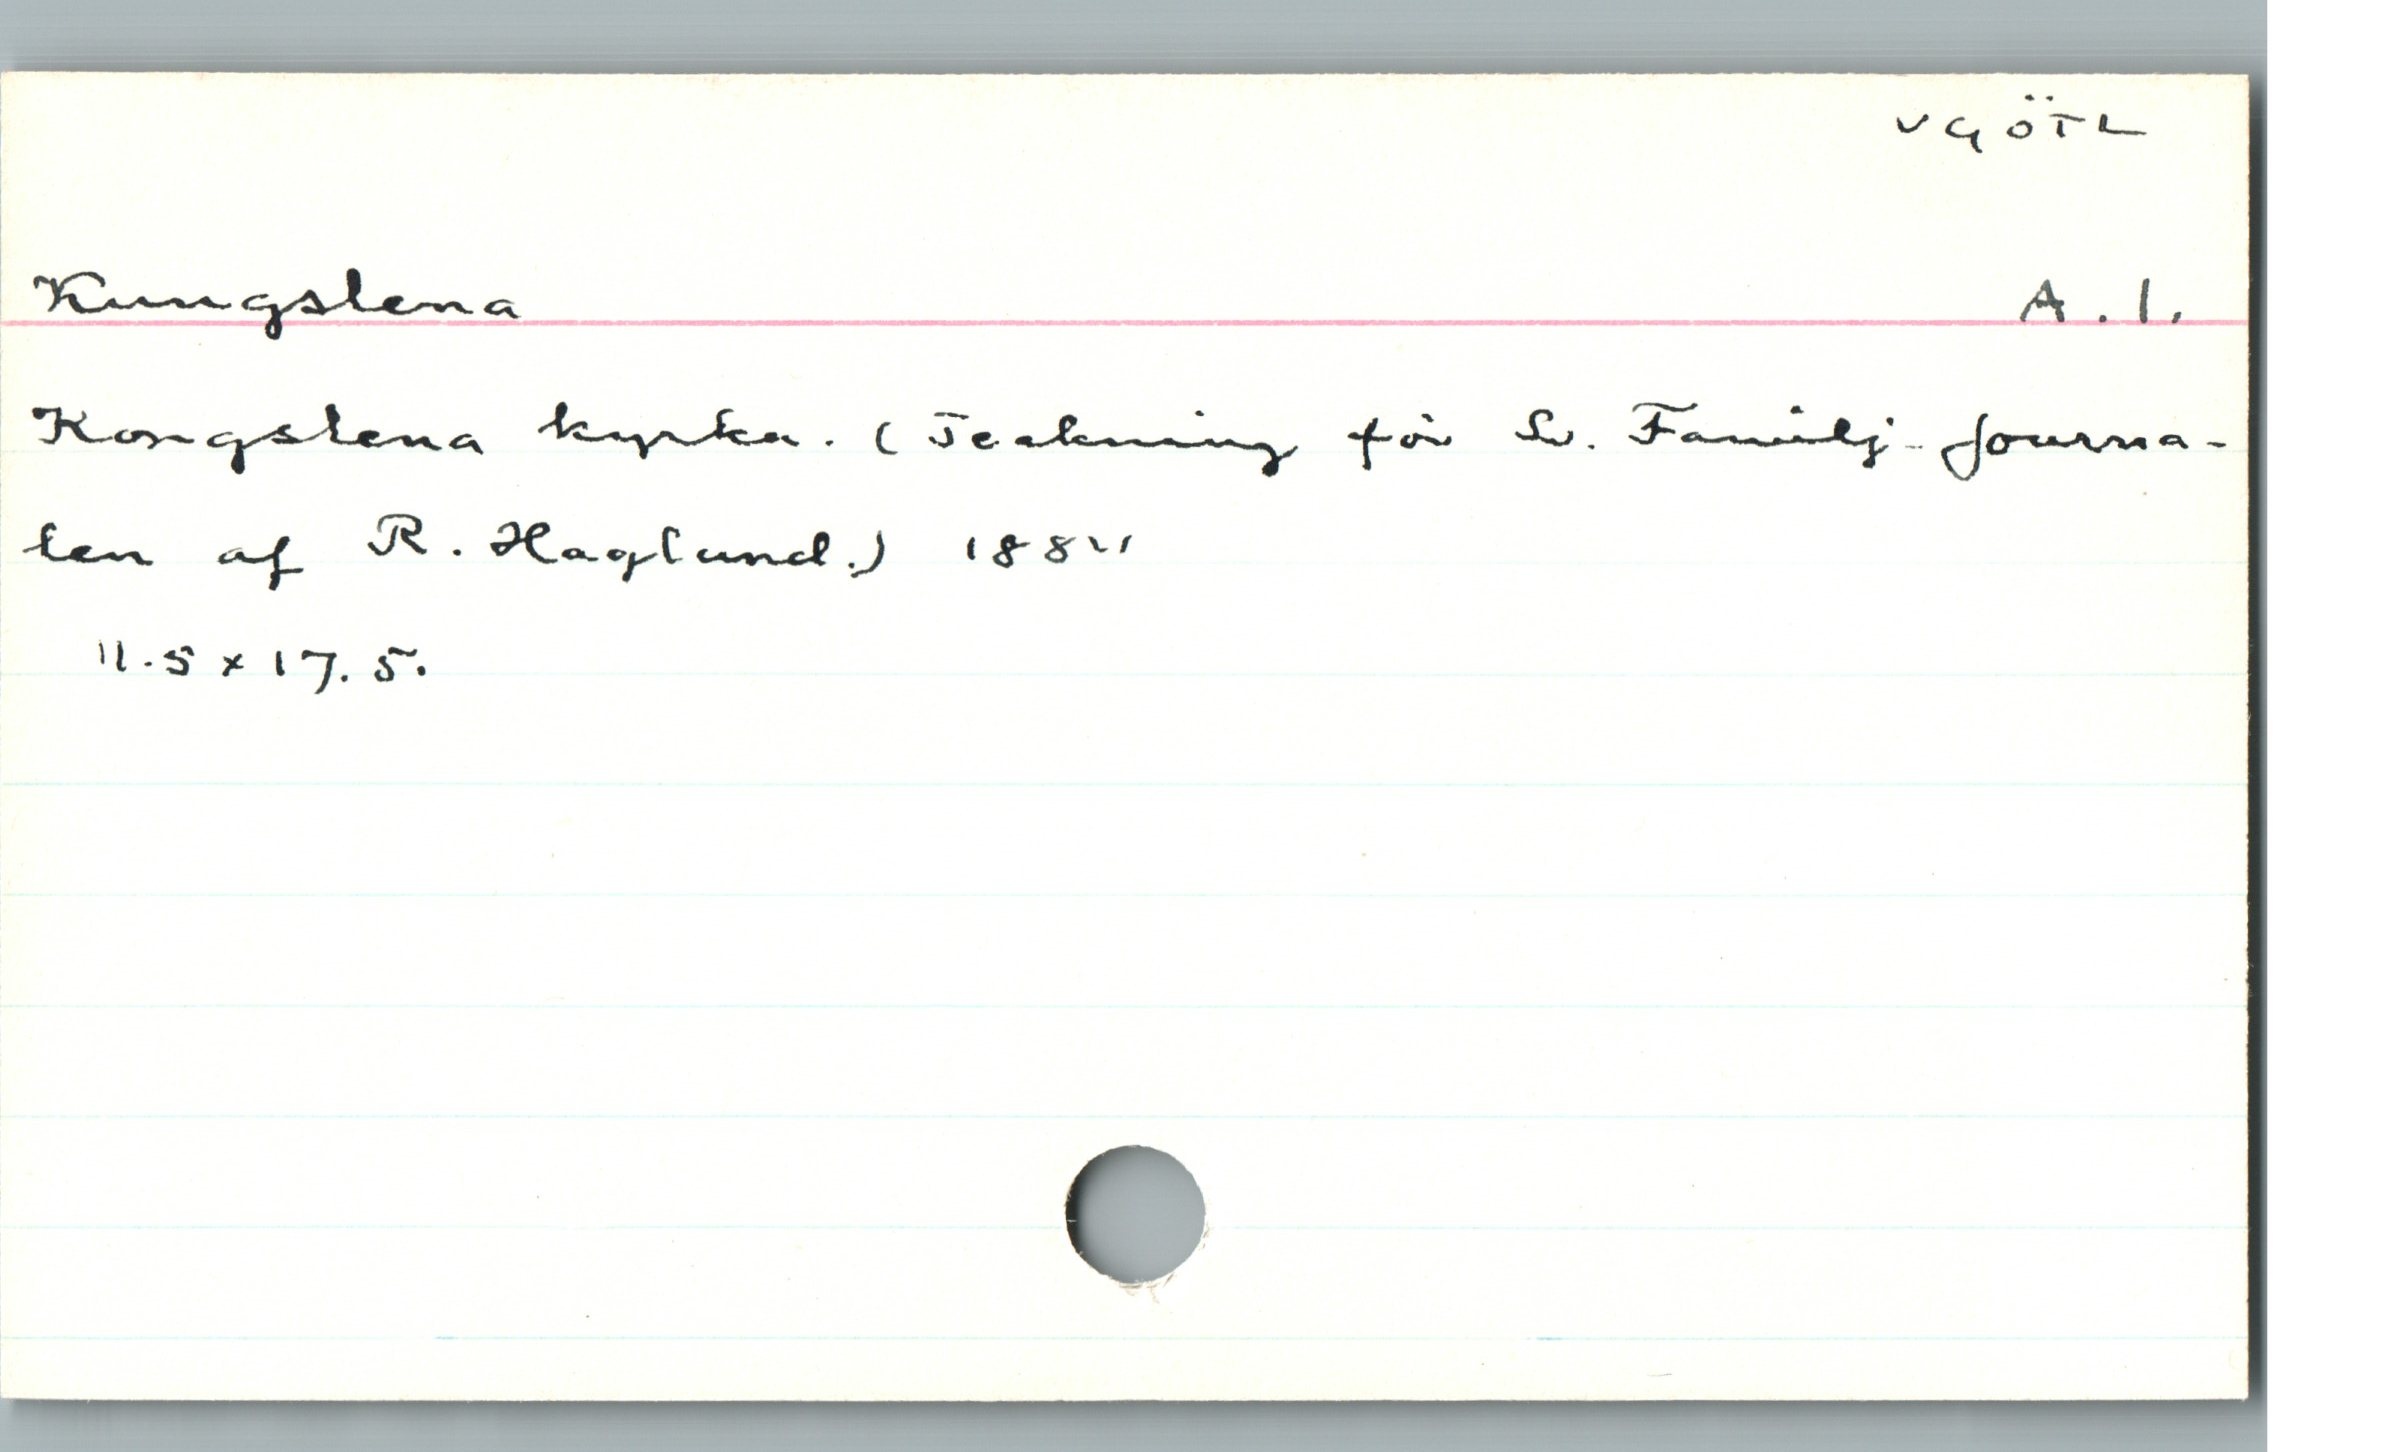 VGÖTL
Kungslena A. 1.
Kongslena kyrka. (Teckning för Sv. Familj-Journa-
len af R. Haglund.)
11.5 x 17.5.